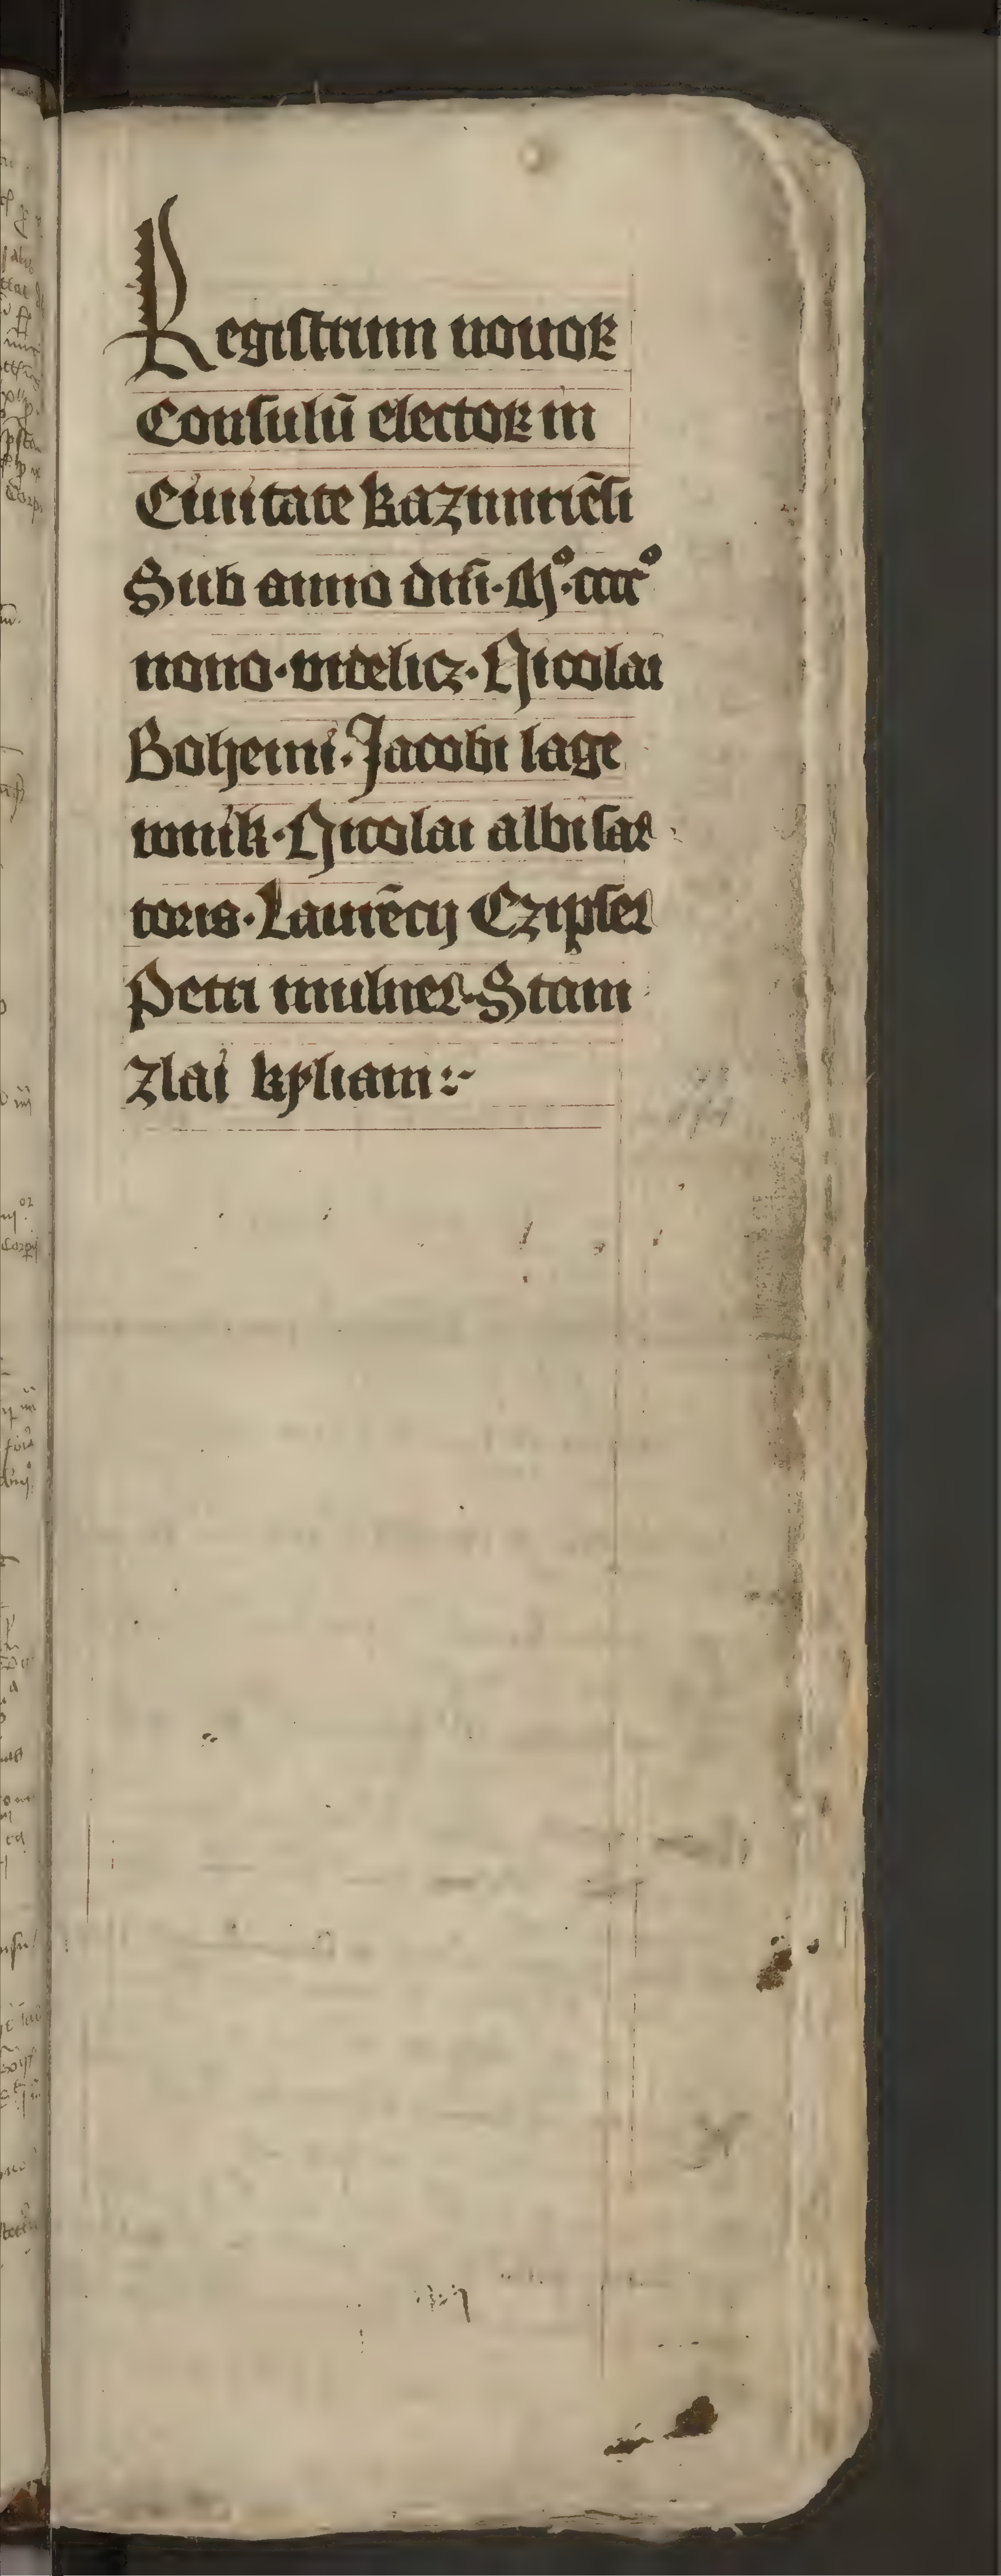 Registrum nouoꝝ
Consulū electoꝝ in
Ciuitate kazimiriēsi
Sub anno dn̄i · Mº · ccccº
nono · videlicꝫ · Nicolai
Bohemi · Jacobi lage
wnik · Nicolai albi sar
toris · Laurēcij Czipser
Petri mulner · Stani
zlai kyliani :~